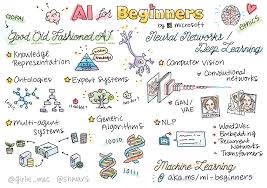 AI for Beginners
by Microsoft
Good Old Fashioned AI
Knowledge
Representation
Ontologies
Expert Systems
Multi-agent
Systems
Genetic
Algorithms
Neural Networks /
Deep Learning
Computer Vision
Convolutional
networks
GAN/
VAE
NLP
Word2Vec
Embedding
Recurrent
Networks
Transformers
Ethics
Machine Learning
@ aka.ms/ml-beginners
@girlie_mac @shwars